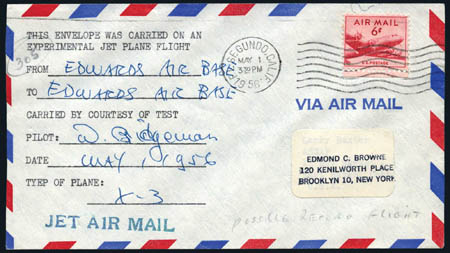 THIS ENVELOPE WAS CARRIED ON AN
EXPERIMENTAL JET PLANE FLIGHT
305
FROM EDWARDS AIR BASE
TO EDWARDS AIR BASE
CARRIED BY COURTESY OF TEST
PILOT: W Bridgeman
DATE MAY 1, 1956
TYEP OF PLANE:
X-3
JET AIR MAIL
EL SEGUNDO, CALIF.
MAY 1
PM
1956
AIR MAIL
6¢
U.S. POSTAGE
VIA AIR MAIL
EDMOND C. BROWNE
120 KENILWORTH PLACE
BROOKLYN 10, NEW YORK
FLIGHT